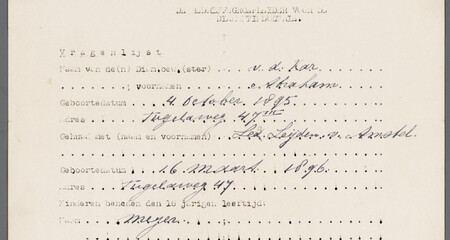 Vragenlijst
Naam van de(n) Dien.bew.(ster) v. d. Kar
: voornamen Abraham
Geboortedatum 4 October 1895
Adres Tugelaweg 47 III
Gehuwd met (naam en voornamen) Lea Leijden v. Amstel
Geboortedatum 16 Maart 1896
Adres Tugelaweg 47
Kinderen beneden den 16 jarigen leeftijd:
Naam Meyer